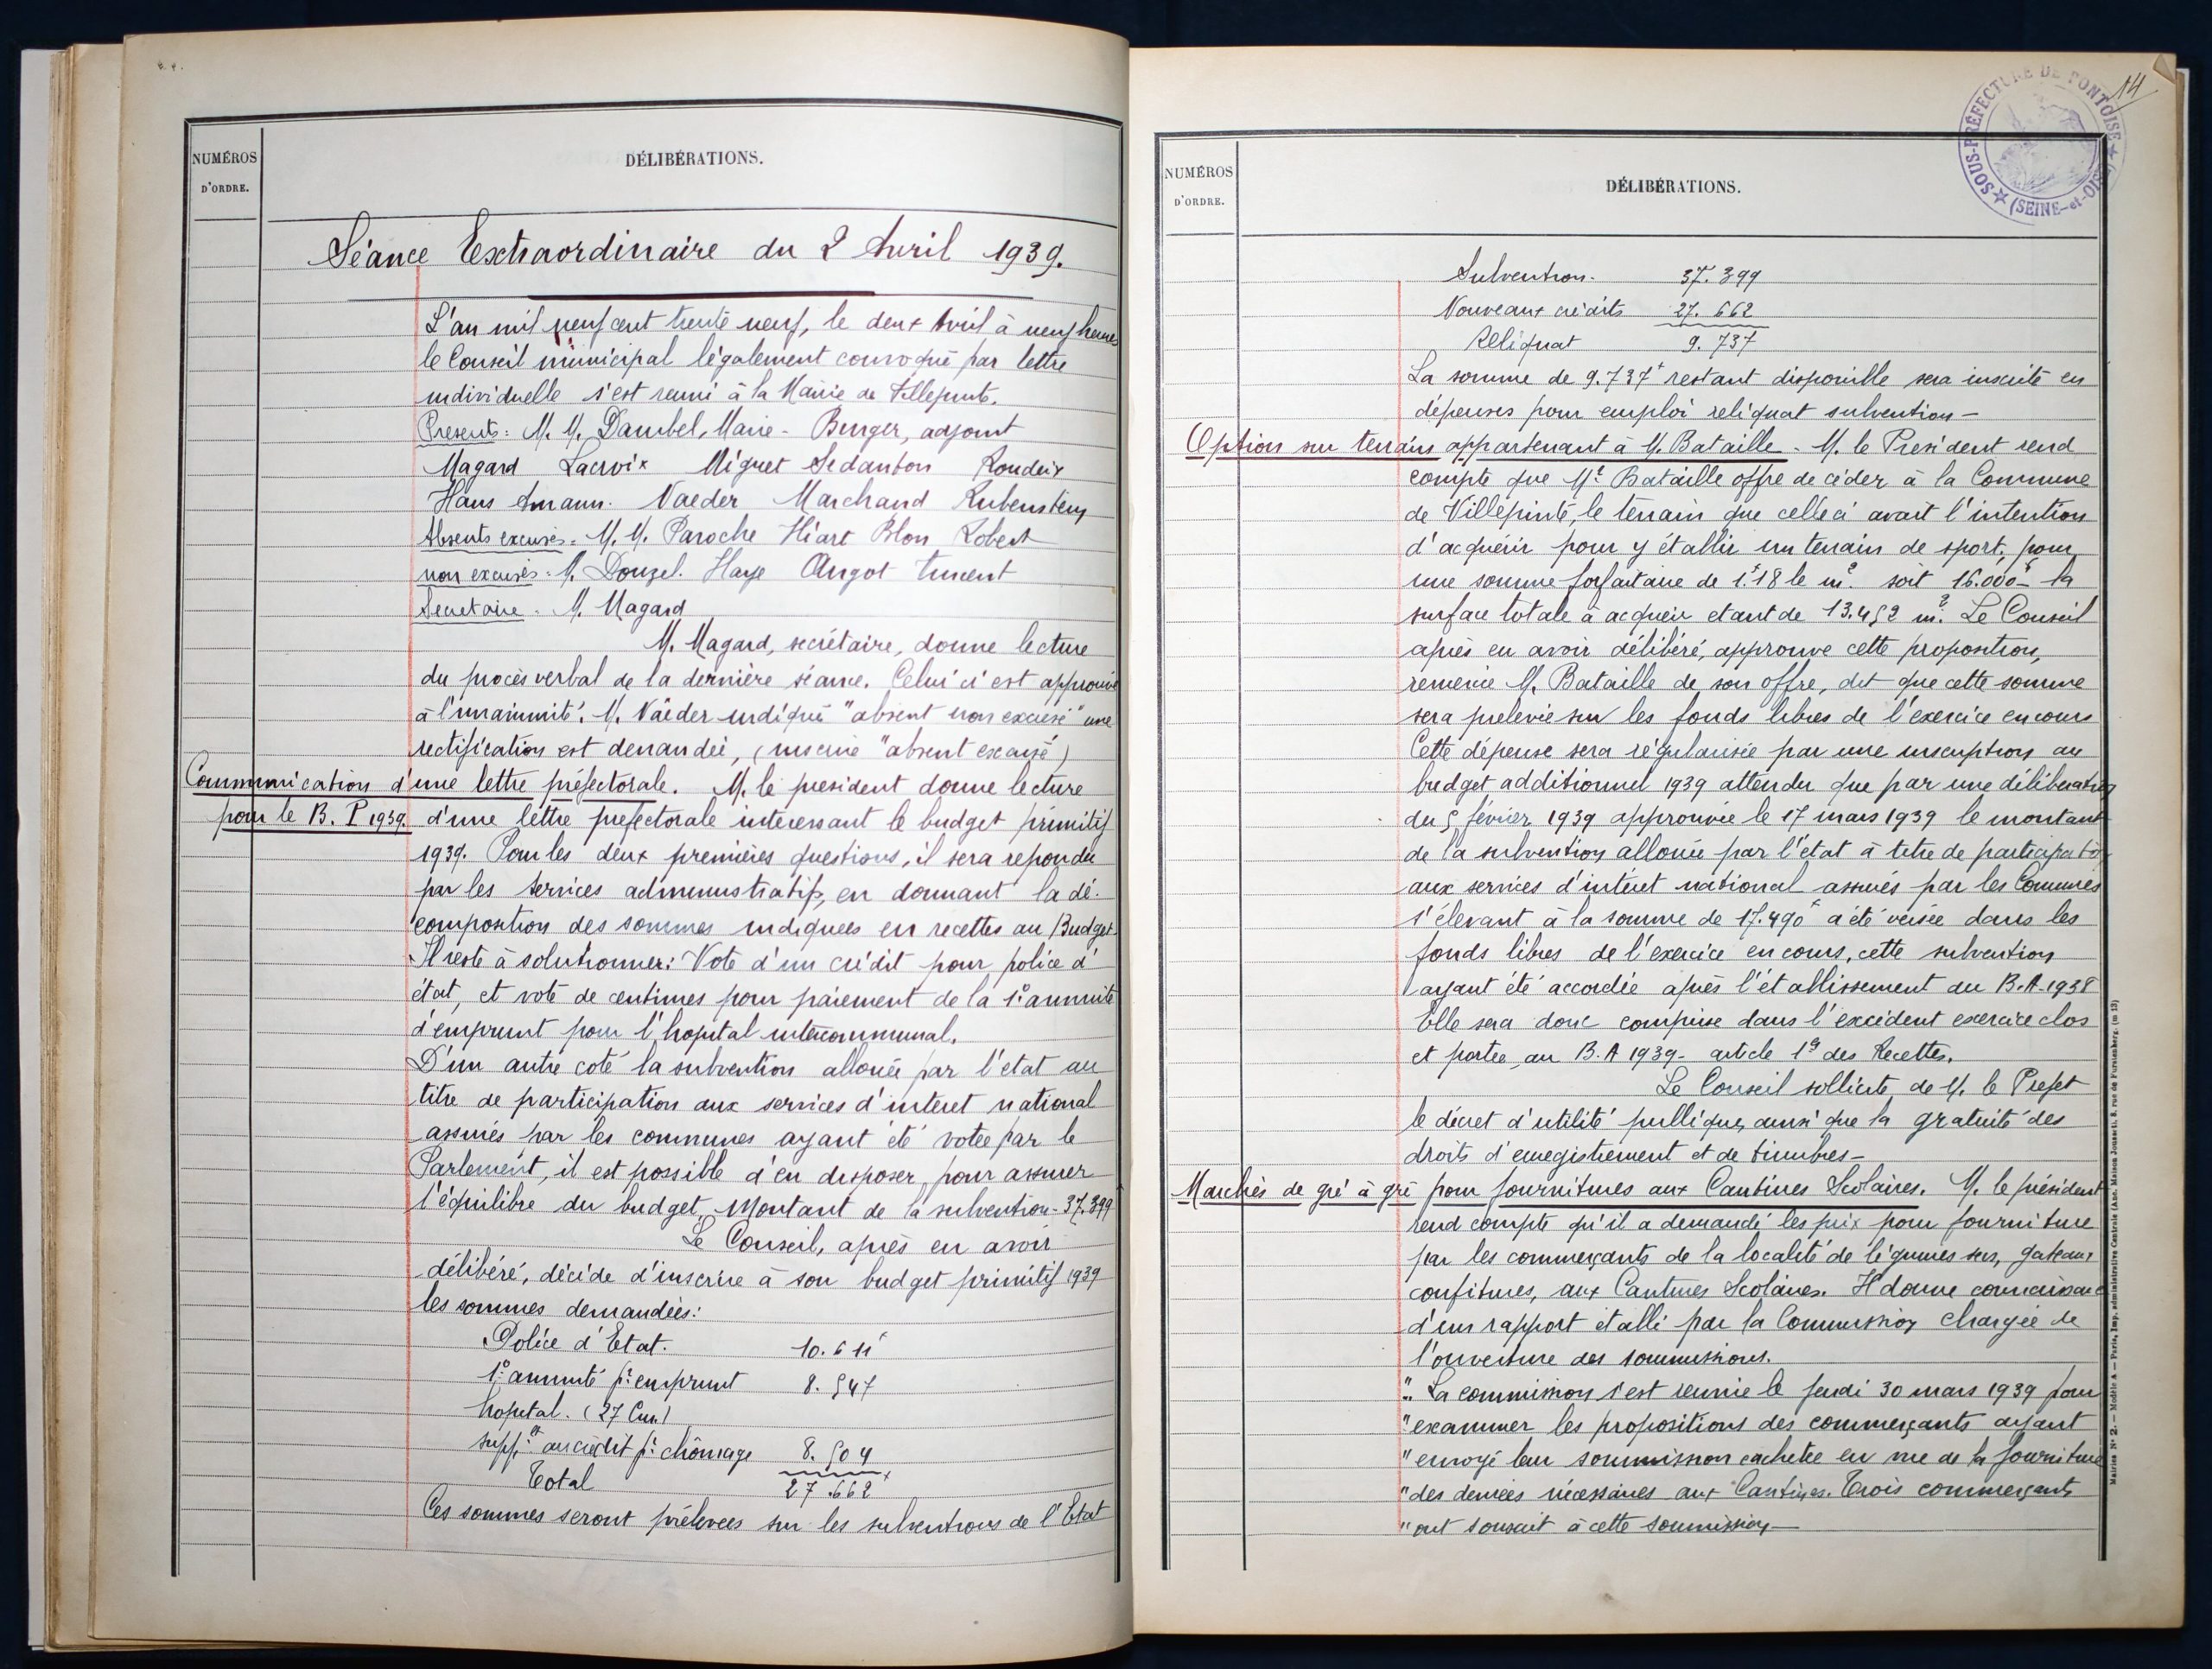 NUMÉROS
D'ORDRE.
DÉLIBÉRATIONS.
Séance Extraordinaire du 2 Avril 1939.
L'an mil neuf cent trente neuf, le deux Avril à neuf heures
le Conseil municipal légalement convoqué par lettre
individuelle s'est reuni à la Mairie de Villepinte.
Presents: M. M. Dambel, Maire - Burger, adjoint
Magard Lacroix Miguet Sedanton Roudeix
Haus Amann. Naeder Marchand Rubenstein
Absents excusés. M. M. Paroche Hiart Blon Robert
non excusés: M. Douzel. Haye Angot Vincent
Secretaire. M. Magard
M. Magard, secrétaire, donne lecture
du procès verbal de la dernière séance. Celui ci est approuvé
à l'unanimité. M. Naeder indiqué "absent non excusé" une
rectification est demandée, (inscrire "absent excusé")
Communication d'une lettre préfectorale. M. le president donne lecture
pour le B. P 1939. d'une lettre prefectorale interessant le budget primitif
1939. Pour les deux premières questions, il sera repondu
par les services administratifs, en donnant la dé-
composition des sommes indiquees en recettes au Budget.
Il reste à solutionner: Vote d'un crédit pour police d'
état, et vote de centimes pour paiement de la 1e annuité
d'emprunt pour l'hopital intercommunal.
D'un autre coté la subvention allouée par l'etat au
titre de participation aux services d'interet national
assurés par les communes ayant été votée par le
Parlement, il est possible d'en disposer pour assurer
l'équilibre du budget. Montant de la subvention - 37.399
Le Conseil, après en avoir
délibéré, décide d'inscrire à son budget primitif 1939
les sommes demandées:
Police d'Etat. 10.611f
1e annuité pr emprunt 8.547
hopital. (27 Cen)
suppt au crédit pr chômage 8.504
Total 27.662f
Ces sommes seront prélevées sur les subventions de l'Etat
14
SOUS-PRÉFECTURE DE PONTOISE
(SEINE-et-OISE)
NUMÉROS
D'ORDRE.
DÉLIBÉRATIONS.
Subvention. 37.399
Nouveaux crédits 27.662
Reliquat 9.737
La somme de 9.737f restant disponible sera inscrite en
dépenses pour emploi reliquat subvention -
Option sur terrains appartenant à M. Bataille. M. le President rend
compte que Mr Bataille offre de céder à la Commune
de Villepinte, le terrain que celle ci avait l'intention
d'acquérir pour y établir un terrain de sport, pour
une somme forfaitaire de 1f18 le m2. soit 16.000f - la
surface totale à acquerir etant de 13.452 m2. Le Conseil
après en avoir délibéré, approuve cette proposition,
remercie M. Bataille de son offre, dit que cette somme
sera prelevée sur les fonds libres de l'exercice en cours
Cette dépense sera régularisée par une inscription au
budget additionnel 1939 attendu que par une délibération
du 5 février 1939 approuvée le 17 mars 1939 le montant
de la subvention allouée par l'etat à titre de participation
aux services d'intéret national assurés par les Communes
s'élevant à la somme de 17.490f a été versée dans les
fonds libres de l'exercice en cours, cette subvention
ayant été accordée après l'établissement du B.A. 1938
Elle sera donc comprise dans l'excédent exercice clos
et portée au B.A 1939 - article 1er des Recettes.
Le Conseil sollicite de M. le Prefet
le décret d'utilité publique, ainsi que la gratuité des
droits d'enregistrement et de timbres -
Marchés de gré à gré pour fournitures aux Cantines Scolaires. M. le président
rend compte qu'il a demandé les prix pour fourniture
par les commerçants de la localité de légumes secs, gateaux
confitures, aux Cantines Scolaires. Il donne connaissance
d'un rapport établi par la Commission chargée de
l'ouverture des soumissions.
". La commission s'est reunie le jeudi 30 mars 1939 pour
"examiner les propositions des commerçants ayant
"envoyé leur soumission cachetée en vue de la fourniture
"des denrées nécessaires aux Cantines. Trois commerçants
"ont souscrit à cette soumission -
Mairies N° 2. — Modèle A — Paris, Imp. administrative Centrale (Anc. Maison Jousset), 8, rue de Furstenberg. (m 13)